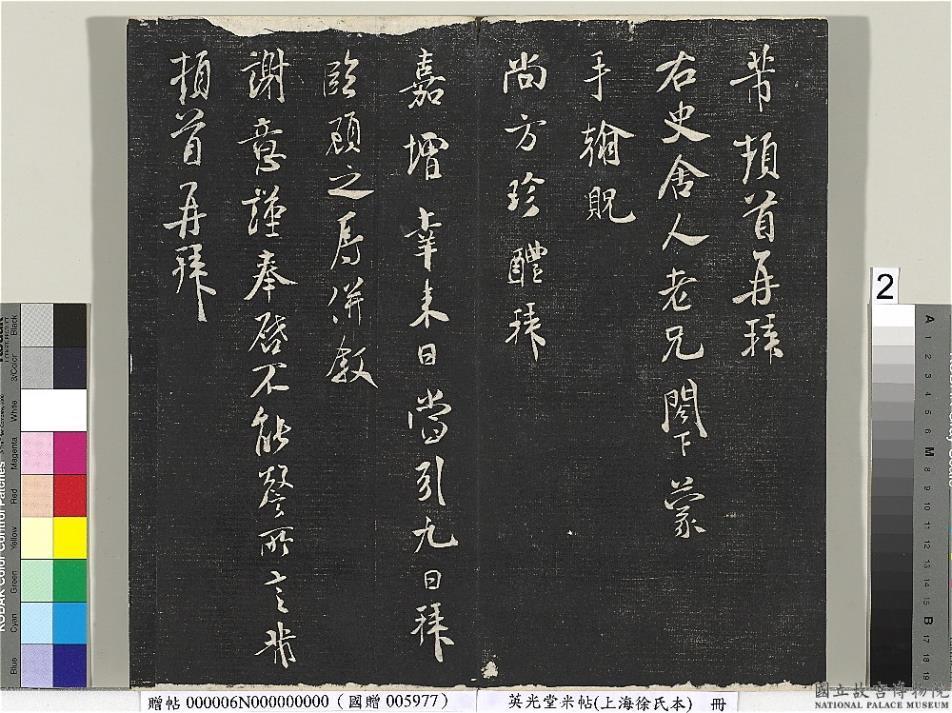 芾頓首再拜
右史舍人老兄閣下蒙
手翰貺
尚方珍醴拜
嘉增幸来日當引九日拜
臨顧之辱併叙
謝意謹奉啓不能罄所言芾
頓首再拜
2
贈帖 000006N000000000 (國贈 005977) 英光堂米帖(上海徐氏本) 冊
國立故宮博物院
NATIONAL PALACE MUSEUM
KODAK Color Control Patches
Blue
Cyan
Green
Yellow
Red
Magenta
White
3/Color
Black
A 1 2 3 4 5 6 M 8 9 10 11 12 13 14 15 B 17 18 19